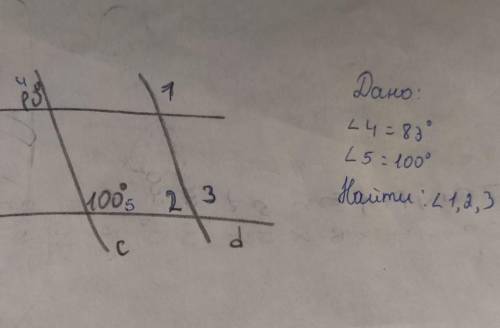 4
83
1
100°
5
2
3
c
d
Дано:
∠4 = 83°
∠5 = 100°
Найти: ∠1,2,3